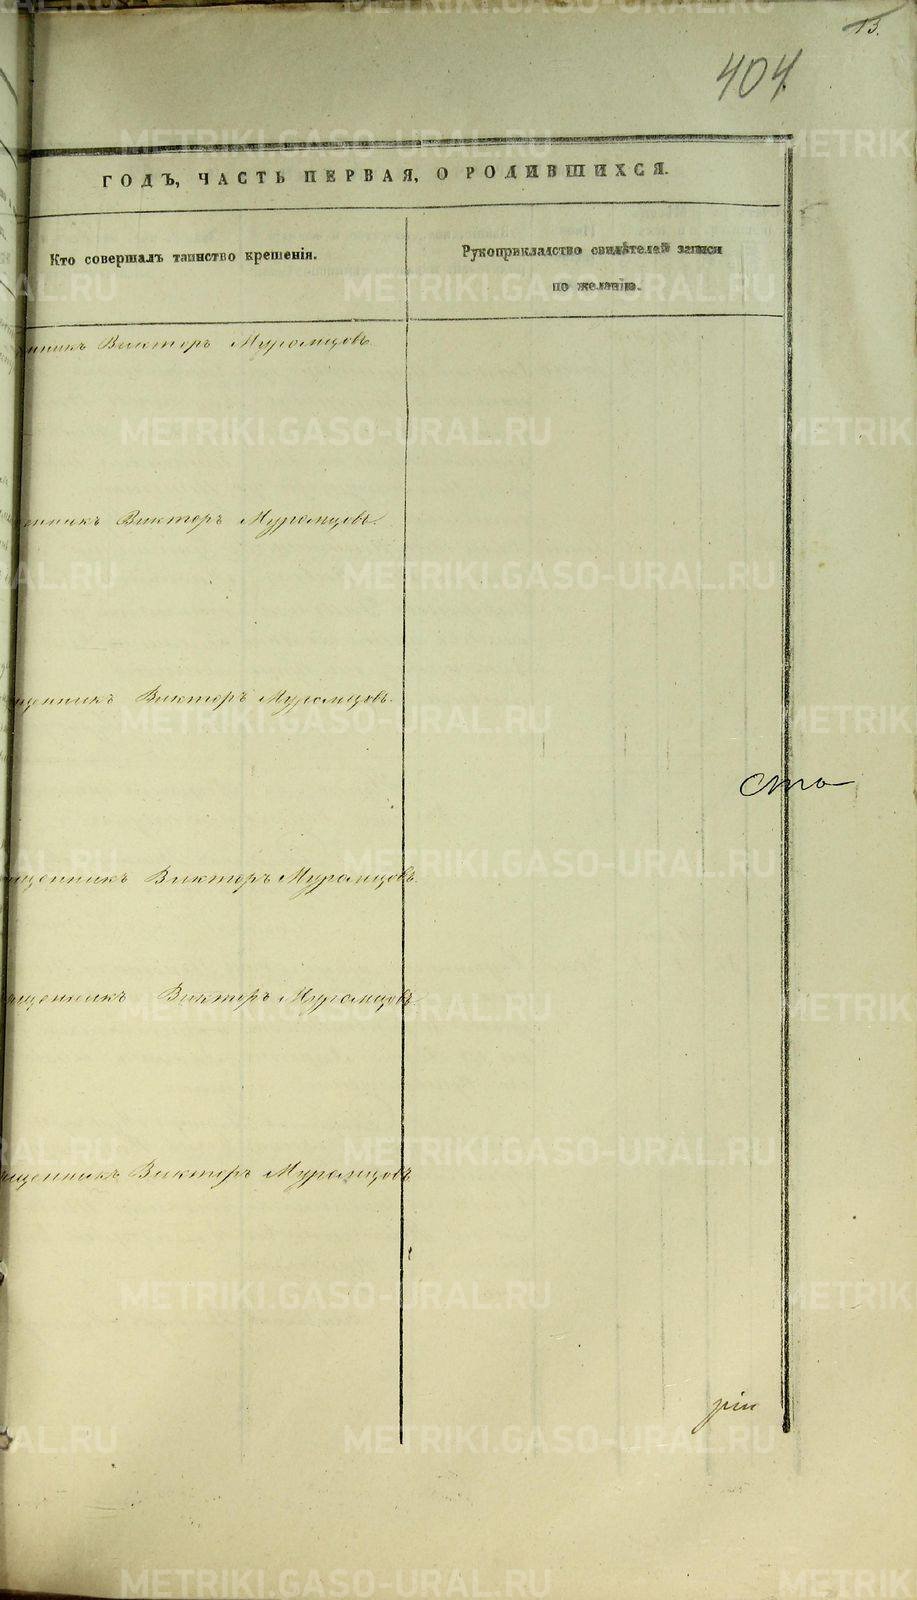 13.
404
ГОДЪ, ЧАСТЬ ПЕРВАЯ, О РОДИВШИХСЯ.
Кто совершалъ таинство крещенія.
Рукоприкладство свидѣтелей записи
по желанію.
нникъ Викторъ Муромцовъ
енникъ Викторъ Муромцовъ.
щенникъ Викторъ Муромцовъ.
щенникъ Викторъ Муромцовъ.
щенникъ Викторъ Муромцовъ.
щенникъ Викторъ Муромцовъ
METRIKI.GASO-URAL.RU